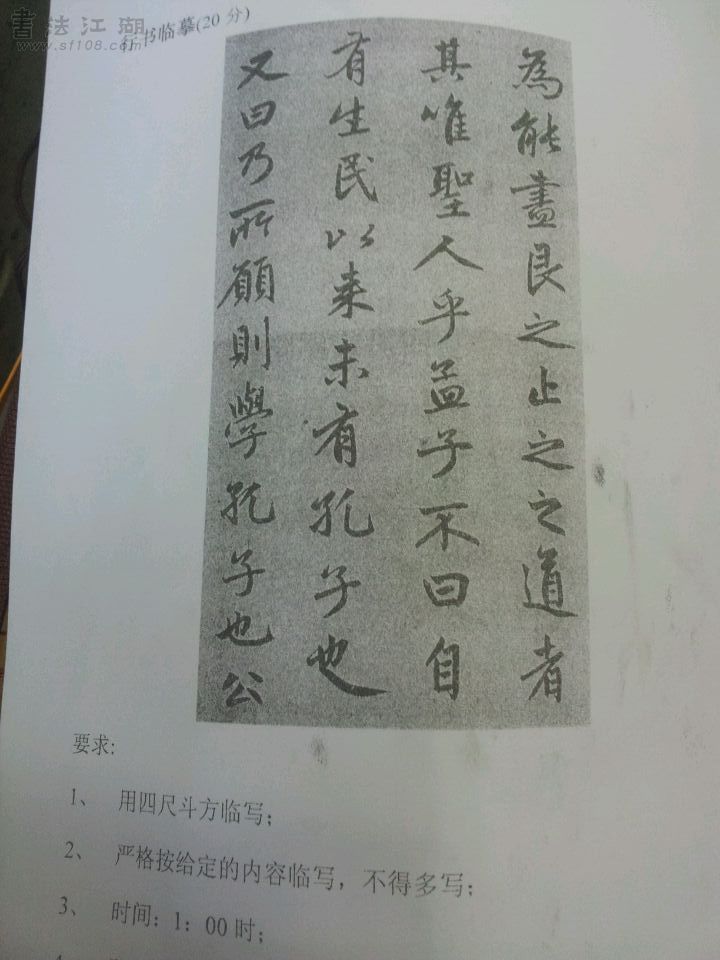 書法江湖
www.sf108.com
行书临摹(20 分)
為能盡艮之止之之道者
其唯聖人乎孟子不曰自
有生民以来未有孔子也
又曰乃所願則學孔子也公
要求:
1、 用四尺斗方临写;
2、 严格按给定的内容临写，不得多写;
3、 时间: 1: 00 时;